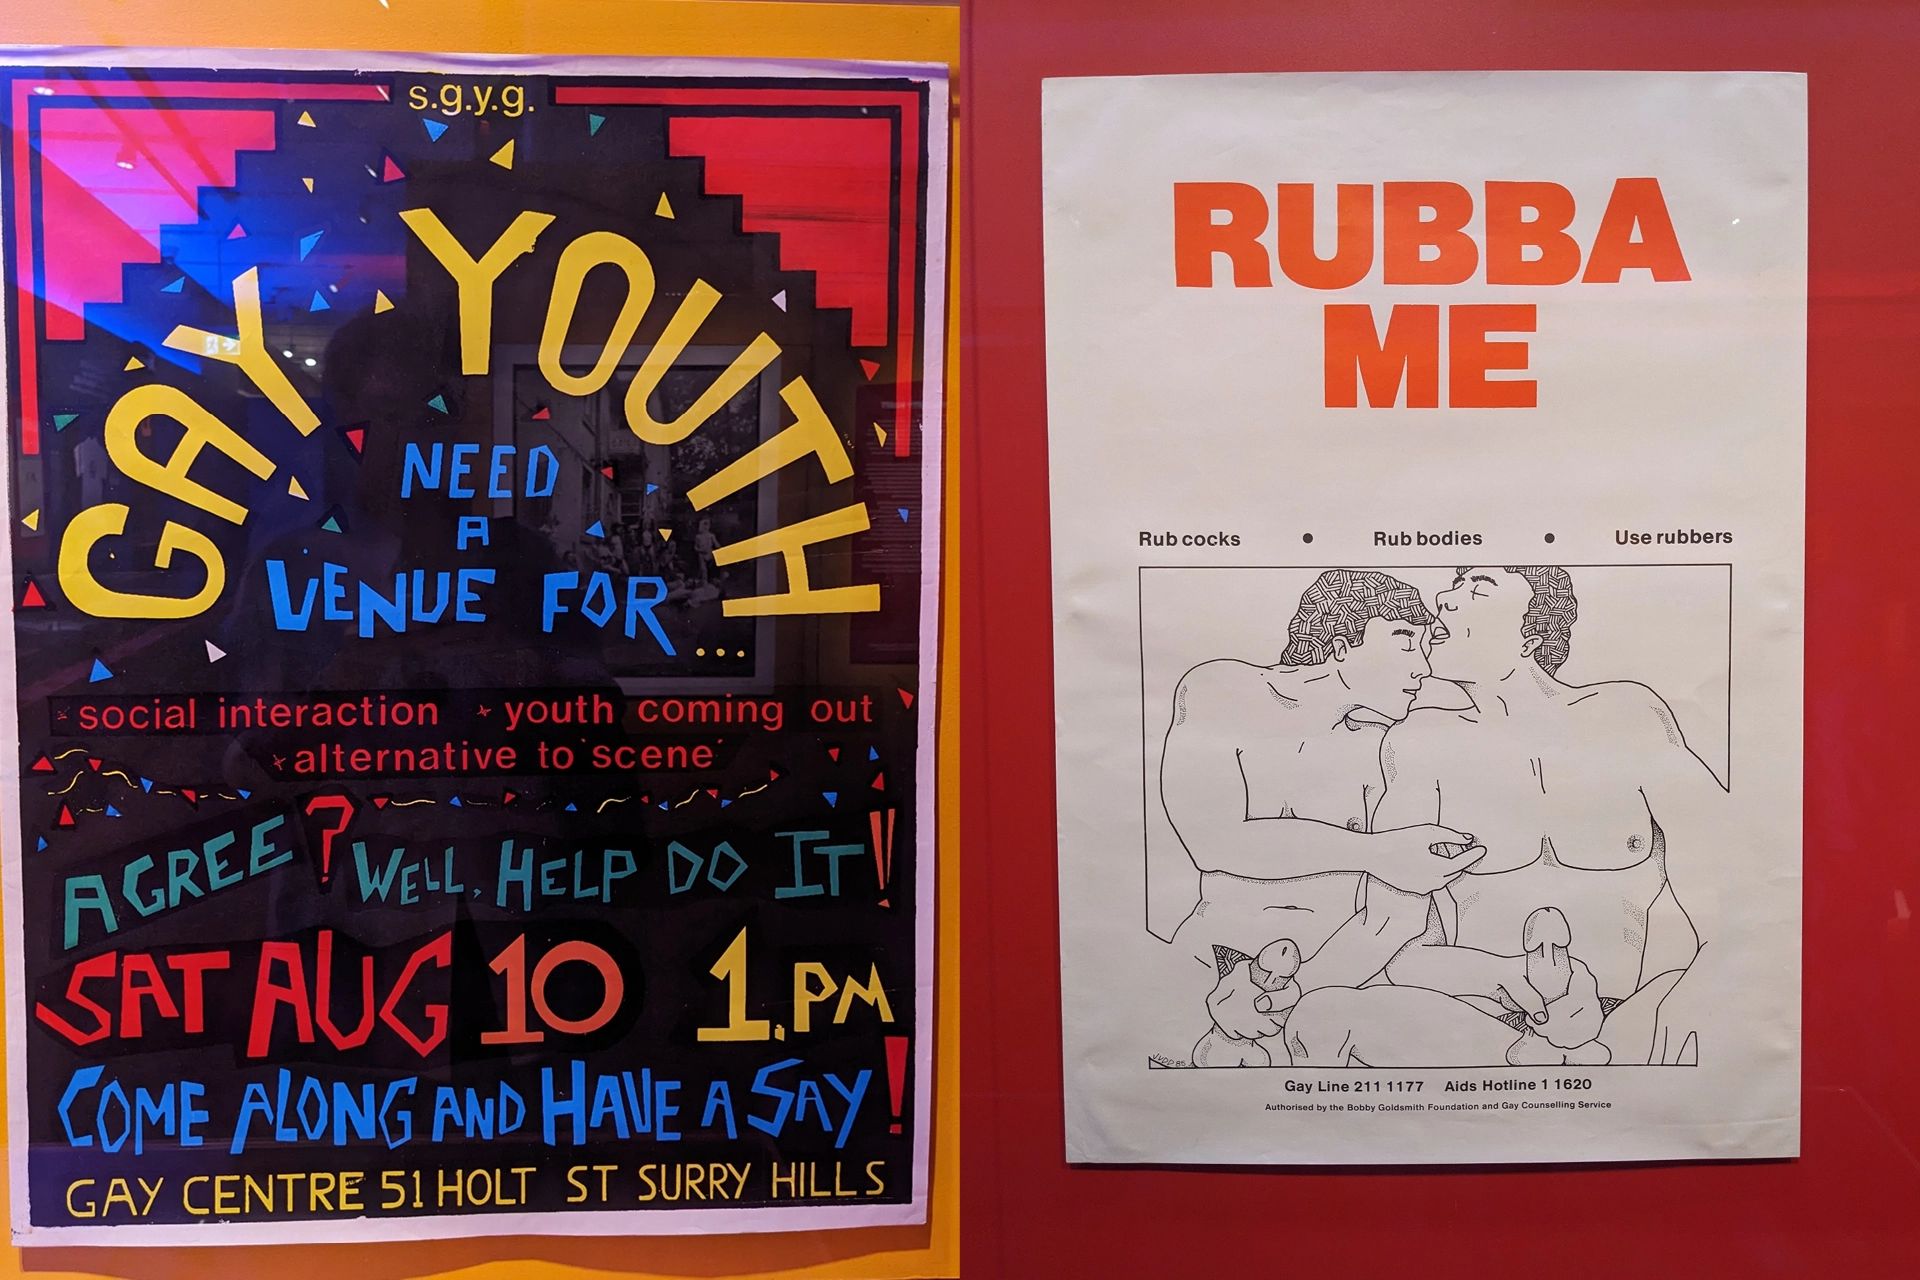 s.g.y.g.
GAY YOUTH
NEED
A
VENUE FOR...
social interaction youth coming out
alternative to 'scene'
AGREE? WELL, HELP DO IT!!
SAT AUG 10 1.PM
COME ALONG AND HAVE A SAY!
GAY CENTRE 51 HOLT ST SURRY HILLS
RUBBA
ME
Rub cocks • Rub bodies • Use rubbers
Gay Line 211 1177 Aids Hotline 1 1620
Authorised by the Bobby Goldsmith Foundation and Gay Counselling Service